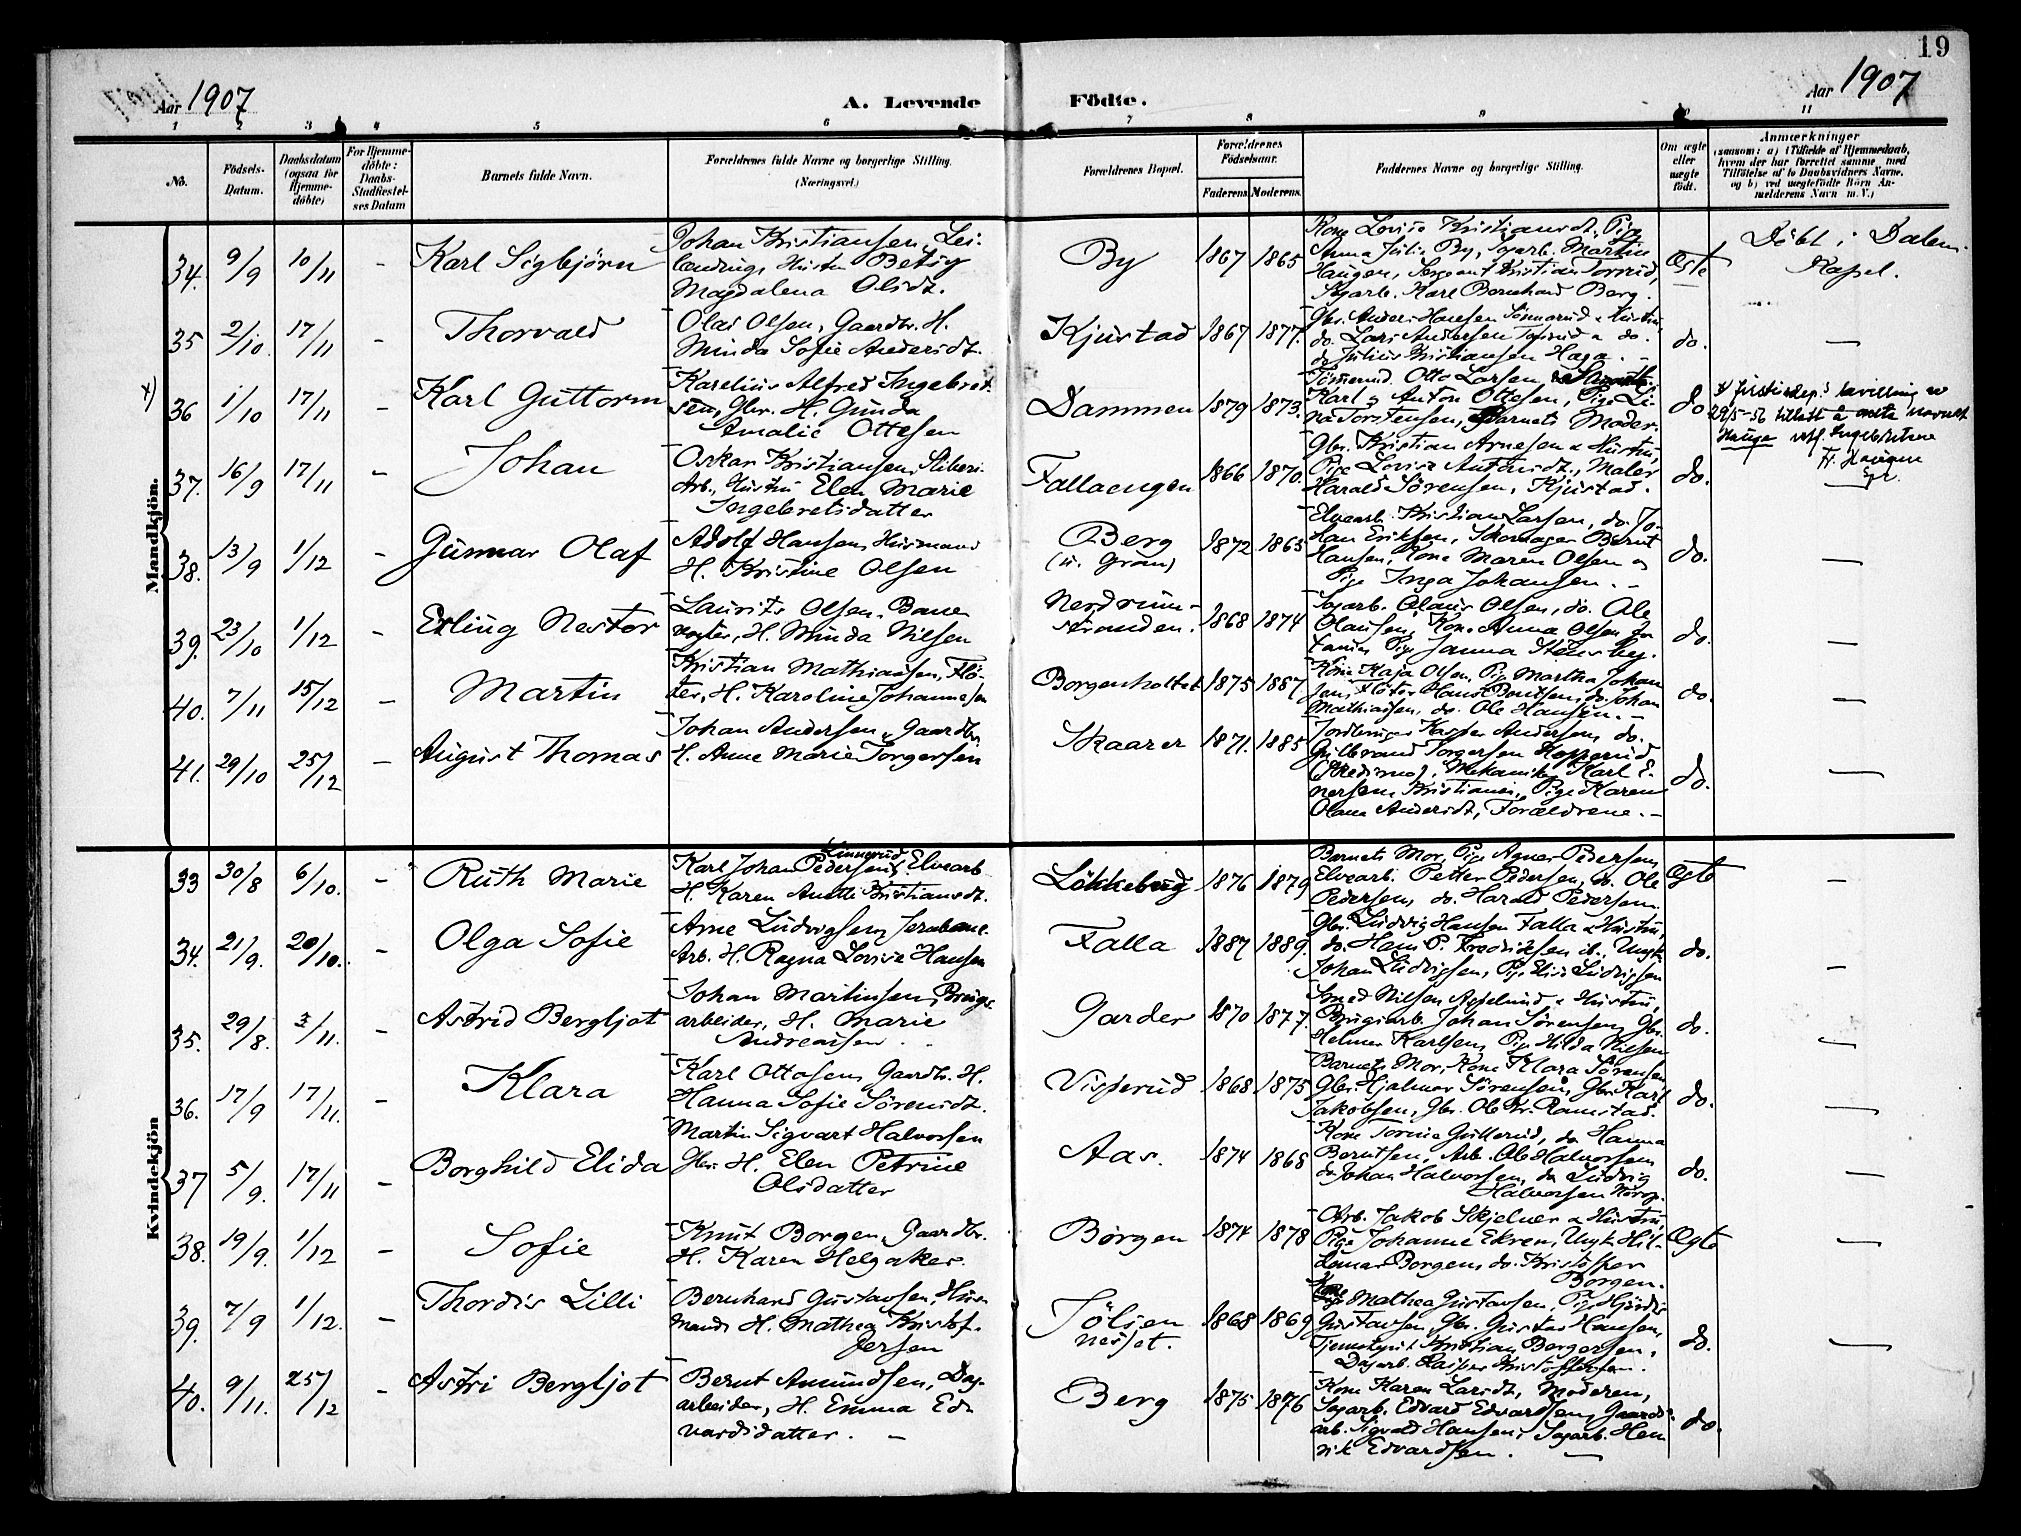 19
Aar 1907
A. Levende
Födte.
Aar 1907
1 2 3 4 5 6 7 8 9 10 11
No.
Födsels-
Datum.
Daabsdatum
(ogsaa for
Hjemme-
döbte)
For Hjemme-
döbte:
Daabs-
Stadfæstel-
ses Datum
Barnets fulde Navn.
Forældrenes fulde Navne og borgerlige Stilling.
(Næringsvei.)
Forældrenes Bopæl.
Forældrenes
Födselsaar.
Faderens. Moderens.
Faddernes Navne og borgerlige Stilling.
Om ægte
eller
uægte
födt.
Anmærkninger
(saasom: a) i Tilfælde af Hjemmedaab,
hvem der har forrettet samme, med
Tilföielse af to Daabsvidners Navne,
og b) ved uægtefödte Börn An-
melderens Navn m. V.)
Mandkjön.
34. 9/9 10/11 - Karl Sigbjörn
Johan Kristiansen, Lei-
lending, Hustru Betsy
Magdalena Olsdt.
By 1867 1865
Kone Lovise Kristiansdt, Pige
Anna Julie By, Sagarb. Martin
Haugen, Sergeant Kristian
Sagarb. Karl Bernhard Berg.
Ægte
Döbt i Dalen
Kapel.
35 2/10 17/11 - Thorvald
Olaf Olsen, Gaardbr. H.
Minda Sofie Andersdt.
Kjustad 1867 1877.
Gbr. Anders Hansen & Hustru
do. Lars Andersen & do.
do Julius Kristiansen Haga. -
do. —
x) 36 1/10 17/11 - Karl Guttorm
Karelius Alfred Ingebret-
sen, Gbr. H. Gunda
Amalie Ottesen
Dammen 1879 1873.
Otto Larsen,
Karl & Anton Ottesen, Pige Li-
na Torstensen, Barnets Moder.
do
29/5-56 tillatt å navnet
Hauger Ingebretsen
37. 16/9 17/11 - Johan
Oskar Kristiansen,
Arb., Hustru Elen Marie
Ingebretsdatter
Fallaengen 1866 1870.
Gbr. Kristian Arnesen & Hustru,
Pige Lovise Antonsdt., Maler
Harald Sörensen, Kjustad.
do. —
38. 13/9 1/12 - Gunnar Olaf
Adolf Hansen, Husmand
H. Kristine Olsen
Berg
(u. Gran)
1872 1865
Elvearb. Kristian Larsen, do. Jo-
han Eriksen, Skomager Bernt
Hansen, Kone Maren Olsen &
Pige Inga Johansen. -
do. —
39. 23/10 1/12 - Erling Nestor
Laurits Olsen, Bane
vogter, H. Minda Nilsen
Nerdrum-
stranden.
1868 1874
Sagarb. Olaus Olsen, do. Ole
Olausen, Kone Anna Olsen
Pige Janna
do. —
40. 7/11 15/12 - Martin
Kristian Mathiassen, Flö-
ter, H. Karoline Johannesen
Borgenholtet 1875 1887
Kone Kaja Olsen, Pig Martha Johan
sen, Flöter Hans Berntsen, do. Johan
Mathiassen, do. Ole Hansen. -
do. —
41. 29/10 25/12 - August Thomas
Johan Andersen, Gaardbr.
H. Anne Marie Torgersen
Skaarer 1871. 1885
Jordbruger Kasper Andersen, do.
Gulbrand Torgersen
(Skedsmo), Mekaniker Karl E-
nersen, Kristiania, Pige Karen
Olava Andersdt, Forældrene. -
do. —
Kvindekjön
33 30/8 6/10. - Ruth Marie
Karl Johan Pedersen, Elvearb
H. Karen Anette Kristiansdt.
Lökkeberg 1876 1879
Barnets Mor, Pige Agnes Pedersen,
Elvearb. Petter Pedersen, do. Ole
Pedersen, do. Harald Pedersen.
Ægte —
34. 21/9. 20/10. - Olga Sofie
Arne Ludvigsen, Jernbane
Arb. H. Ragna Lovise Hansen
Falla 1887 1889.
Gbr. Ludvig Hansen Falla & Hustru,
do. Hans P. Fredriksen ib., Ungk.
Johan Ludvigsen, Pige Elise Ludvigsen
do. —
35. 29/8. 3/11. - Astrid Bergljot
Johan Martinsen, Brugs
arbeider, H. Marie
Andreassen.
Garder 1870 1877.
Smed Nilsen & Hustru,
Brugsarb. Johan Sörensen, Gbr.
Helmer Karlsen, Pige Hilda Nilsen
do. —
36. 17/9 17/11. - Klara
Karl Ottosen, Gaardbr. H.
Hanna Sofie Sörensdt.
Visperud 1868 1875
Barnets Mor, Kone Klara Sörensen,
Gbr. Hjalmar Sörensen, Gbr. Karl
Jakobsen, Gbr. Ole Kr. Ramstad.
do. —
37 5/9. 17/11 - Borghild Elida
Martin Sigvart Halvorsen
Gbr. H. Elen Petrine
Olsdatter
Aas. 1874 1868
Kone Gullerud, do Hanna
Berntsen, Arb. Ole Halvorsen,
do Johan Halvorsen, do Ludvig
Halvorsen
do. —
38. 19/9. 1/12 - Sofie
Knut Borgen, Gaardbr.
H. Karen Helgaker.
Borgen 1874 1878
Arb. Jakob Skjelver & Hustru,
Pige Johanne Ekren, Ungk. Hil-
demar Borgen, do. Kristoffer
Borgen.
Ægte —
39. 7/9 1/12. - Thordis Lilli
Bernhard Gustavsen, Hus-
mand, H. Mathea Kristof-
fersen
Jölsen
nesset.
1868 1869
Kone Mathea Gustavsen, Pige Hjördis
Gustavsen, Gbr. Gustav Hansen,
Kristian Bergersen,
Dagarb. Kasper Kristoffersen.
do. —
40. 9/11. 25/12 - Astri Bergljot
Bernt Amundsen, Dag-
arbeider, H. Emma Ed-
vardsdatter. -
Berg 1875 1876
Kone Karen Larsdt, Moderen,
Sagarb. Edvard Edvardsen, Gaards-
arb. Sigvald Hansen, Sagarb. Hen
rik Edvardsen. —
do.